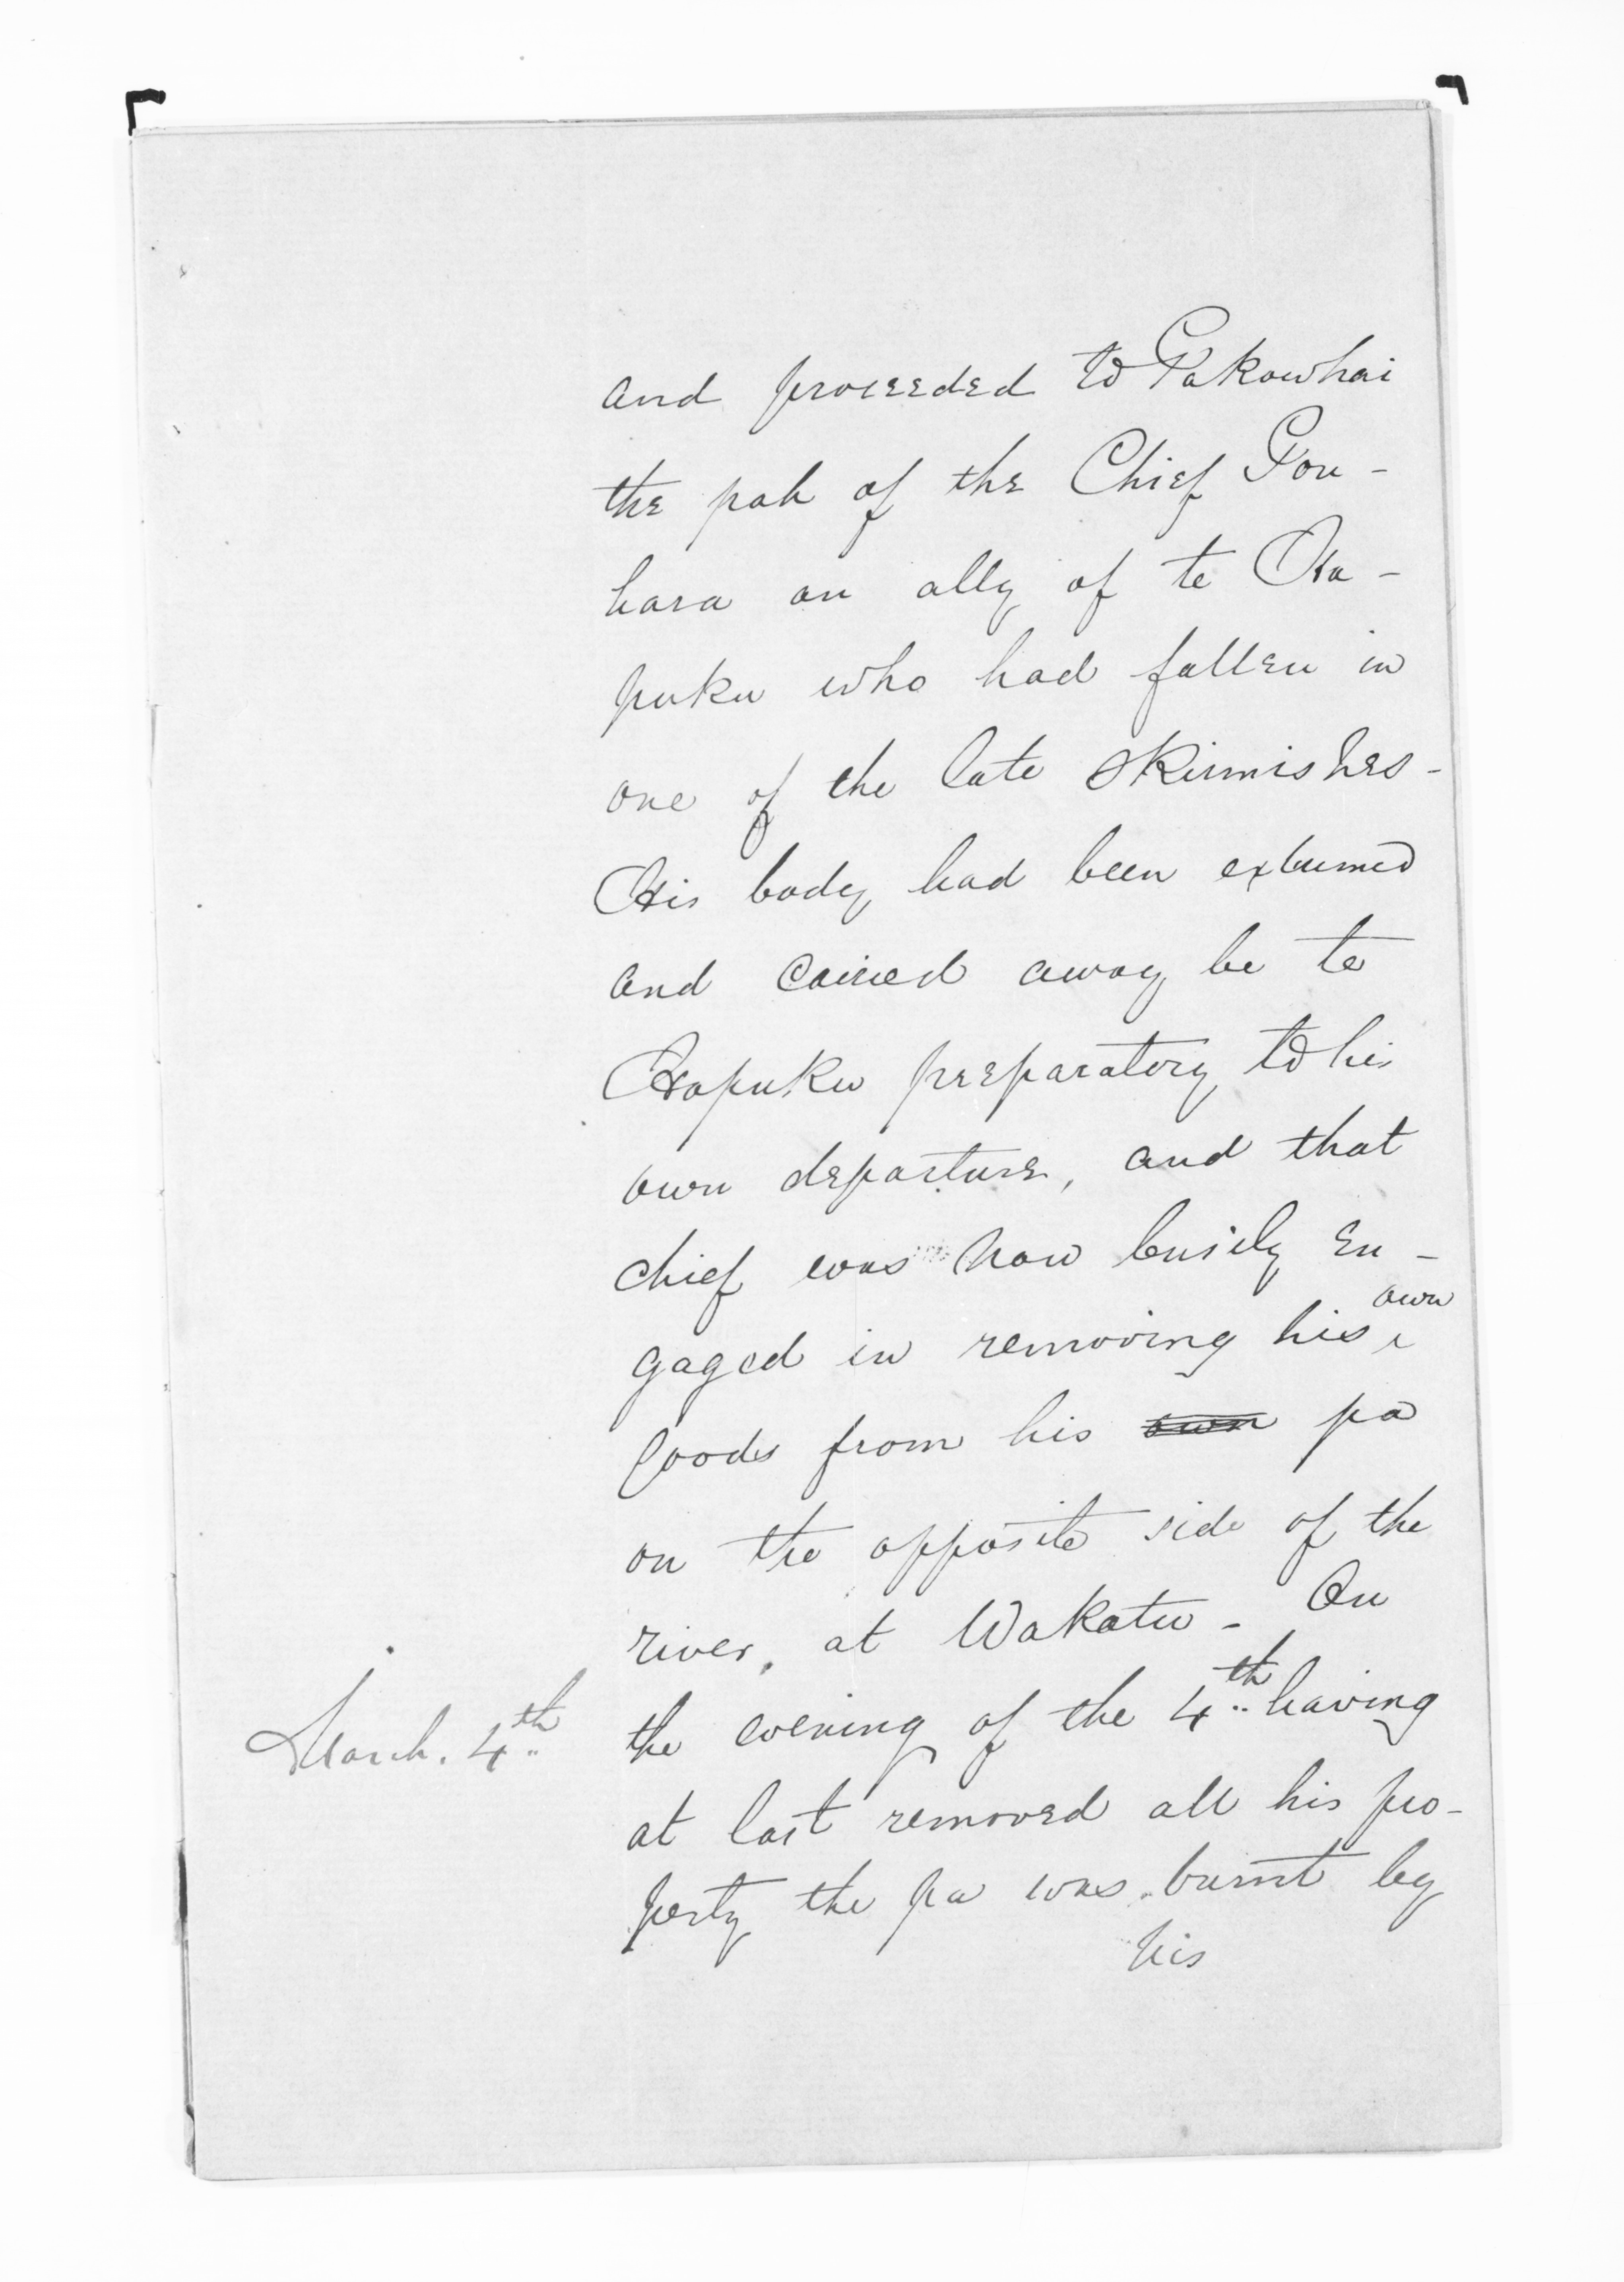 and proceeded to Pakowhai
the pah of the Chief Pou-
hara an ally of te Ha-
puku who had fallen in
one of the late skirmishes -
His body had been exhumed
and caried away be te
Hapuku preparatory to his
own departure, and that
chief was now busily en-
own
gaged in removing his
goods from his own pa
on the opposite side of the
river, at Wakatu - On
March. 4th the evening of the 4th having
at last removed all his pro-
perty the pa was burnt by
his